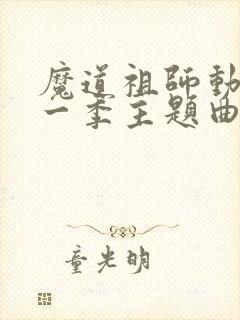 魔道祖師動
一季主題曲
童光明